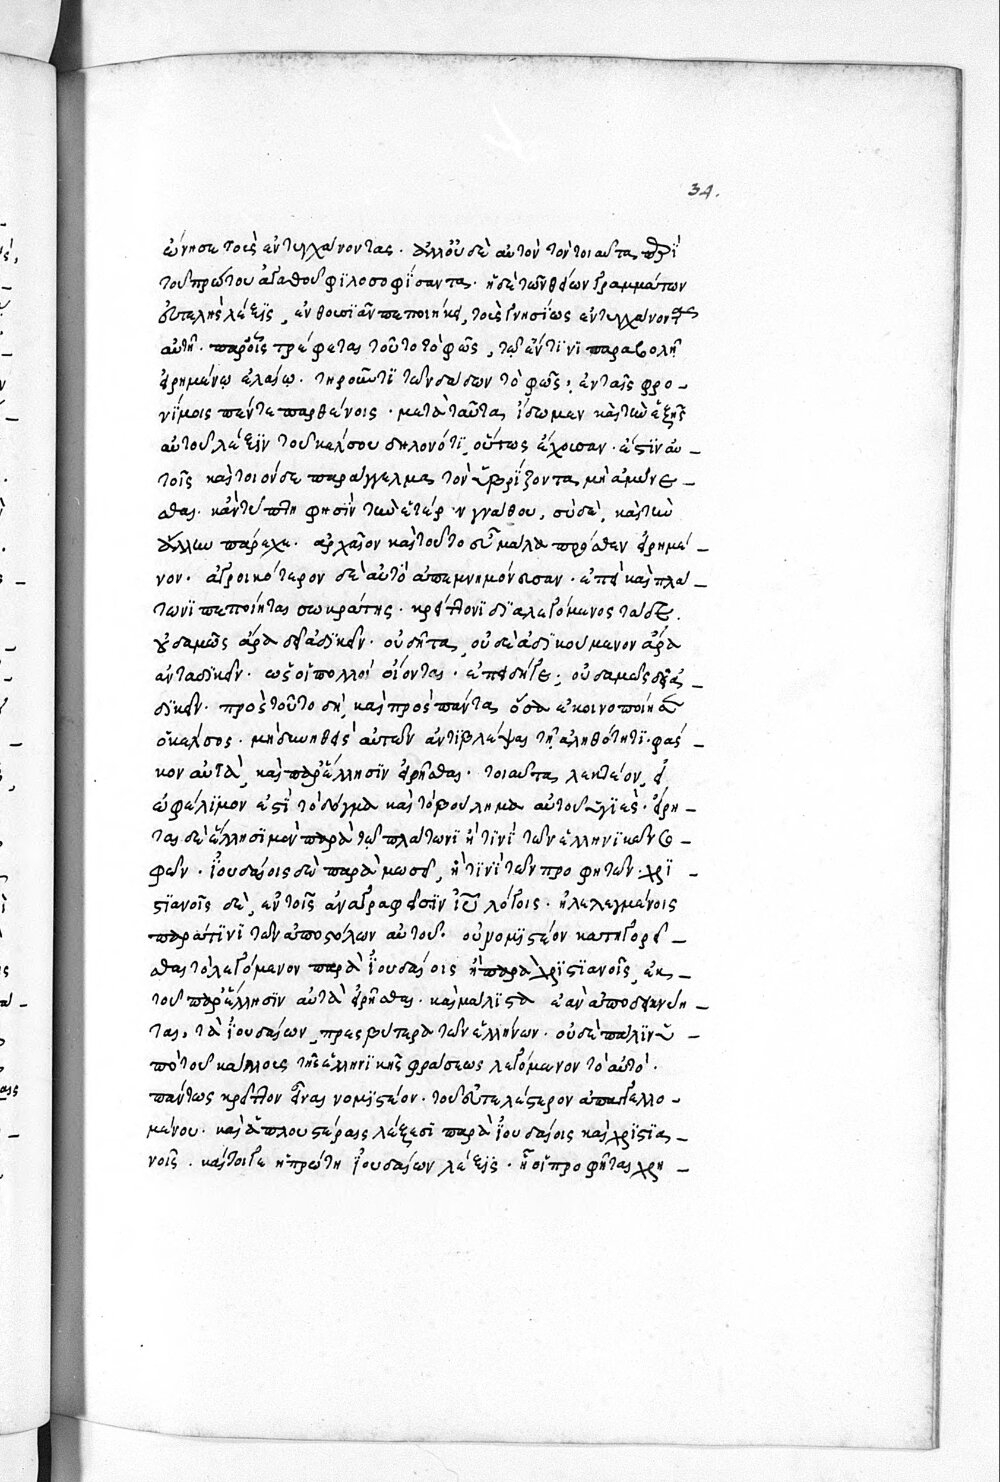 34.
ὤνησε τοὺς ἐντυγχάνοντας. ἀλλ' οὐδὲ αὐτὸν τὸν τοιαῦτα περὶ
τοῦ πρώτου ἀγαθοῦ φιλοσοφήσαντα. ἡ δὲ τῶν θείων γραμμάτων
εὐτελὴς λέξις, ἐνθουσιᾶν πεποίηκε, τοὺς γνησίως ἐντυγχάνοντας
αὐτῇ. παρ' οἷς τρέφεται τοῦτο τὸ φῶς, τῷ ἔν τινι παραβολῇ
εἰρημένῳ ἐλαίῳ. τηροῦντι τῶν δάδων τὸ φῶς, ἐν ταῖς φρο-
νίμοις πέντε παρθένοις. μετὰ ταῦτα ἴδωμεν καὶ τὴν ἑξῆς
αὐτοῦ λέξιν τοῦ κέλσου δηλονότι, οὕτως ἔχουσαν. ἔστιν αὐ-
τοῖς καὶ τοιόνδε παράγγελμα τὸν ὑβρίζοντα μὴ ἀμύνε-
σθαι. κἂν τύπτῃ φησὶν τὴν ἑτέρην γνάθον, σὺ δὲ, καὶ τὴν
ἄλλην πάρεχε. ἀρχαῖον καὶ τοῦτο εὖ μάλα πρόσθεν εἰρημέ-
νον. ἀγροικότερον δὲ αὐτὸ ἀπεμνημόνευσαν. ἐπεὶ καὶ πλά-
τωνι πεποίηται σωκράτης. κρίτωνι διαλεγόμενος τάδε.
οὐδαμῶς ἄρα δεῖ ἀδικεῖν. οὐ δῆτα, οὐδὲ ἀδικούμενον ἄρα
ἀνταδικεῖν. ὡς οἱ πολλοὶ οἴονται. ἐπειδήγε, οὐδαμῶς δεῖ ἀ-
δικεῖν. πρὸς τοῦτο δὴ, καὶ πρὸς πάντα ὅσα ἐκοινοποίησεν
ὁ κέλσος. μὴ δυνηθεὶς αὐτῶν ἀντιβλέψαι τῇ ἀληθότητι. φάσ-
κων αὐτὰ, καὶ παρ' ἕλλησιν εἰρῆσθαι. τοιαῦτα λεκτέον, εἰ
ὠφέλιμόν ἐστι τὸ δόγμα καὶ τὸ βούλημα αὐτοῦ ὑγιές. εἴρη-
ται δὲ ἕλλησι μὲν παρὰ τῷ πλάτωνι ἤ τινι τῶν ἑλληνικῶν σο-
φῶν. ἰουδαίοις δὲ παρὰ μωσεῖ, ἤ τινι τῶν προφητῶν. χρι-
στιανοῖς δὲ, ἐν τοῖς ἀναγραφεῖσιν ἰῦ λόγοις. ἢ λελεγμένοις
παρά τινι τῶν ἀποστόλων αὐτοῦ. οὐ νομιστέον κατηγορεῖ-
σθαι τὸ λεγόμενον παρὰ ἰουδαίοις ἢ παρὰ χριστιανοῖς, ἐκ
τοῦ παρ' ἕλλησιν αὐτὰ εἰρῆσθαι. καὶ μάλιστα ἐὰν ἀποδεικνύη-
ται, τὰ ἰουδαίων, πρεσβύτερα τῶν ἑλλήνων. οὐδὲ πάλιν ὑ-
πὸ τοῦ κάλλους τῆς ἑλληνικῆς φράσεως λεγόμενον τὸ αὐτὸ.
πάντως κρεῖττον εἶναι νομιστέον. τοῦ εὐτελέστερον ἀπαγγελλο-
μένου. καὶ ἁπλουστέραις λέξεσι παρὰ ἰουδαίοις καὶ χριστια-
νοῖς. καίτοιγε ἡ πρώτη ἰουδαίων λέξις. ᾗ οἱ προφῆται χρη-